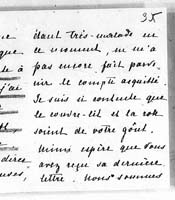 35
étant très-malade en
que ce moment, n'm'a
te à pas encore fait parve-
j'ai nir le compte acquitté.
Je suis si contente que
le couvre-lit et la robe
soient de votre goût.
Mimi espère que vous
dires avez reçu sa dernière
uses, lettre. Nous sommes